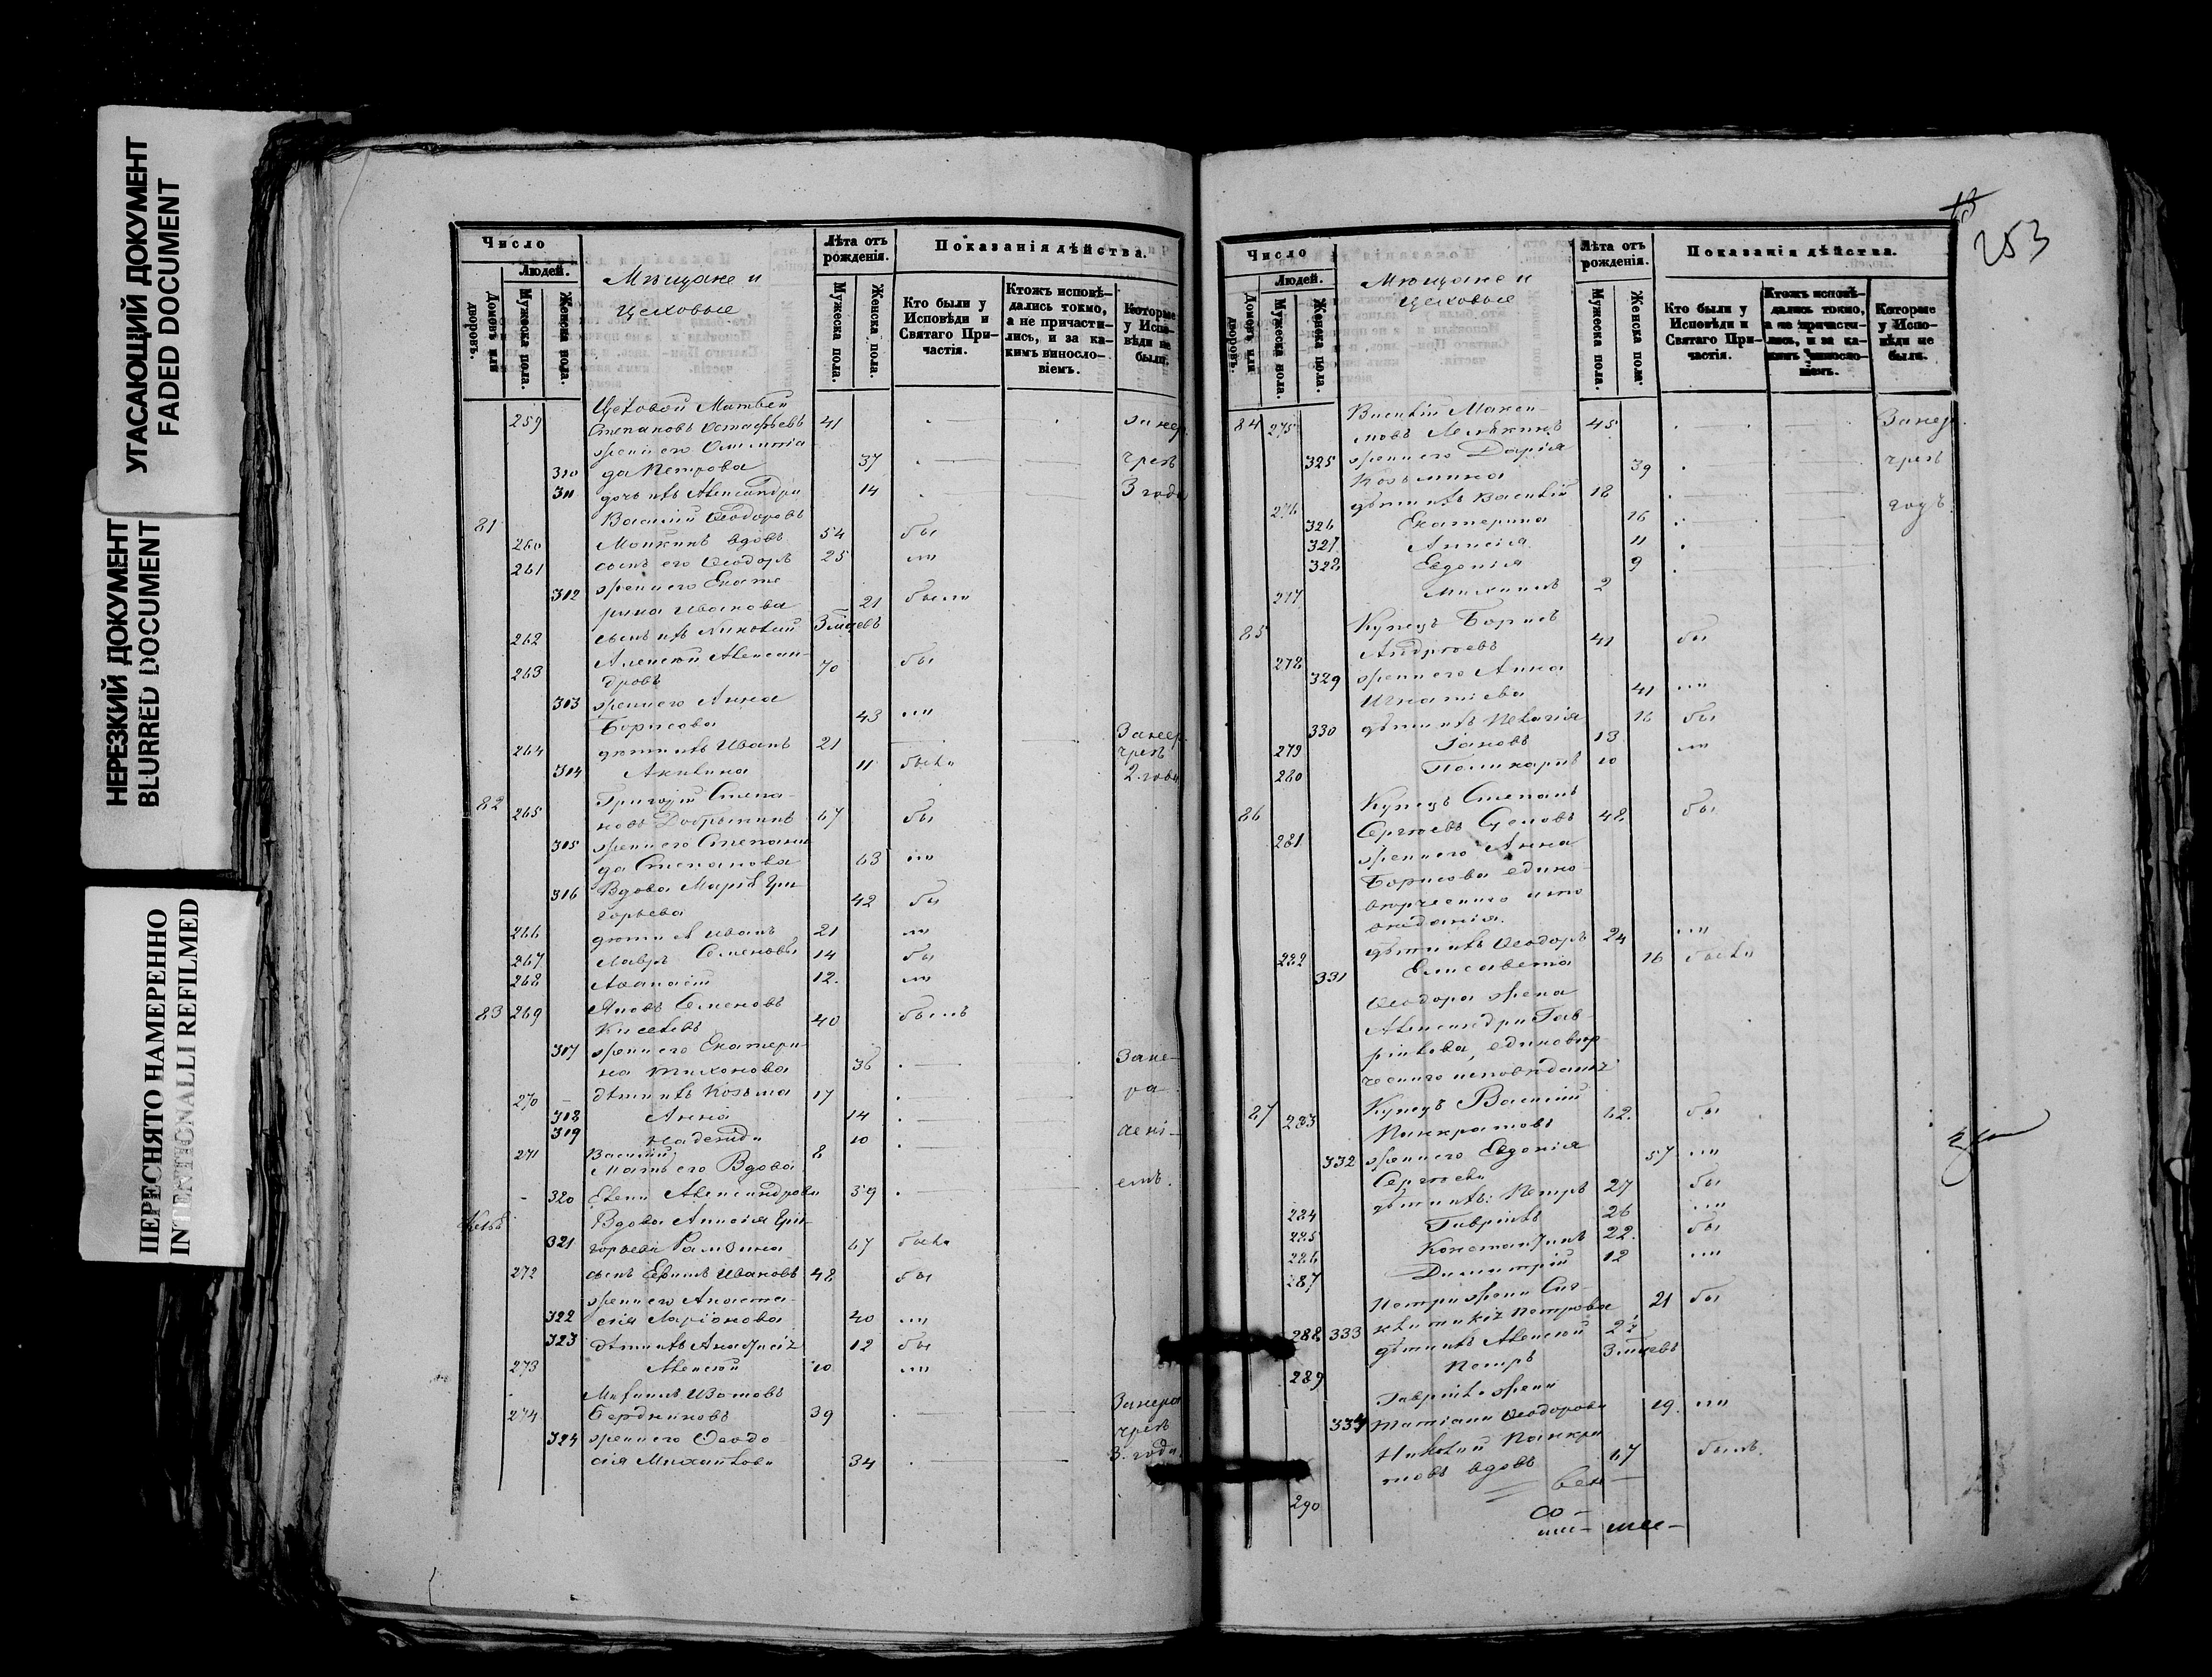 УГАСАЮЩИЙ ДОКУМЕНТ
FADED DOCUMENT
НЕРЕЗКИЙ ДОКУМЕНТ
BLURRED DOCUMENT
ПЕРЕСНЯТО НАМЕРЕННО
INTENTIONALLI REFILMED
Число
Людей.
Домовъ или дворовъ.
Мужеска пола.
Женска пола.
Мѣщане и
Цеховые
Лѣта отъ рожденія.
Мужеска пола.
Женска пола.
Показанія дѣйства.
Кто были у Исповѣди и Святаго Причастія.
Ктожъ исповѣдались токмо, а не причастились, и за какимъ винословіемъ.
Которые у Исповѣди не были.
Цеховой Матвей
259 Степановъ Остафьевъ 41 Занер.
жена его Олимпіа
310 да Петрова 37 чрезъ
311 дочь ихъ Александра 14 3 года
81 Василій Ѳеодоровъ
260 вдовъ 54 бы
261 сынъ его Ѳеодоръ 25 ли
312 жена его Екате
рина Иванова 21 были
262 сынъ ихъ Николай 3 мцевъ
263 Алексѣй Алексан-
дровъ 70 бы
303 жена его Анна
Борисова 43 ли
264 дѣти ихъ Иванъ 21 Занер. чрезъ
304 Акилина 11 была 2 года
82 265 Григорій Степа-
новъ Добрынинъ 67 бы
305 жена его Степани
да Степанова 63 ли
316 Вдова Марія Гри
горьева 42 бы
266 дѣти ея Иванъ 21 ли
267 Лавръ Семеновы 14 бы
268 Аѳанасій 12. ли
83 269 Яковъ Семеновъ
Киселевъ 40 былъ
307 жена его Екатери
на Тихонова 36 Зане-
270 дѣти ихъ Козьма 17 ра
308 Анна 14
309 Надежда 10 дені-
271 Василій 8
Мать его Вдова
320 Елена Александрова 59 емъ.
Вдова Анисія Гри-
321 горьева 67 была
272 сынъ Ефимъ Ивановъ 48 бы
жена его Анаста-
322 сія Ларіонова 40 ли
323 дѣти ихъ 12 бы
273 Алексѣй 10 ли
Михаилъ Изотовъ Занера
274 Бердниковъ 39 чрезъ
324 жена его Ѳеодо
сія Михайлова 34 3. года
253
Число
Людей.
Домовъ или дворовъ.
Мужеска пола.
Женска пола.
Мѣщане и
Цеховые
Лѣта отъ рожденія.
Мужеска пола.
Женска пола.
Показанія дѣйства.
Кто были у Исповѣди и Святаго Причастія.
Ктожъ исповѣдались токмо, а не причастились, и за какимъ винословіемъ.
Которые у Исповѣди не были.
84 275 Василій Макси-
мовъ 45 Занер.
325 жена его Дарія
Козьмина 39 чрезъ
276 дѣти ихъ Василій 18 годъ.
326 Екатерина 16
327 Анисія 11
328 Евдокія 9
277 Михаилъ 2
85 Купецъ Борисъ
278 Андреевъ 41 бы
329 жена его Анна
Игнатіева 41 ли
330 дѣти ихъ Пелагія 16 бы
279 Іаковъ 13 ли
280 Поликарпъ 10
86 Купецъ Степанъ
281 Сергѣевъ 48 бы
жена его Анна
Борисова едино-
вѣрческаго испо
вѣданія.
282 дѣти ихъ Ѳеодоръ 24 ли
331 Елисавета 16 была
Ѳеодора жена
Александра Гав-
рилова, единовѣр
ческаго исповѣданія
87 283 Купецъ Василій
Панкратовъ 62. бы
332 жена его Евдокія
Сергѣева 57 ли
284 дѣти ихъ: Петръ 27 бы
285 Гавріилъ 26 ли
286 Константинъ 22. бы
287 Димитрій 12 ли
Петра жена
333 Петрова 21 бы
288 дѣти ихъ Алексѣй 2
289 Петръ 3 мцевъ
Гавріила жена
334 Татіана Ѳеодорова 19. ли
Николай Панкра
290 товъ вдовъ 67 былъ.